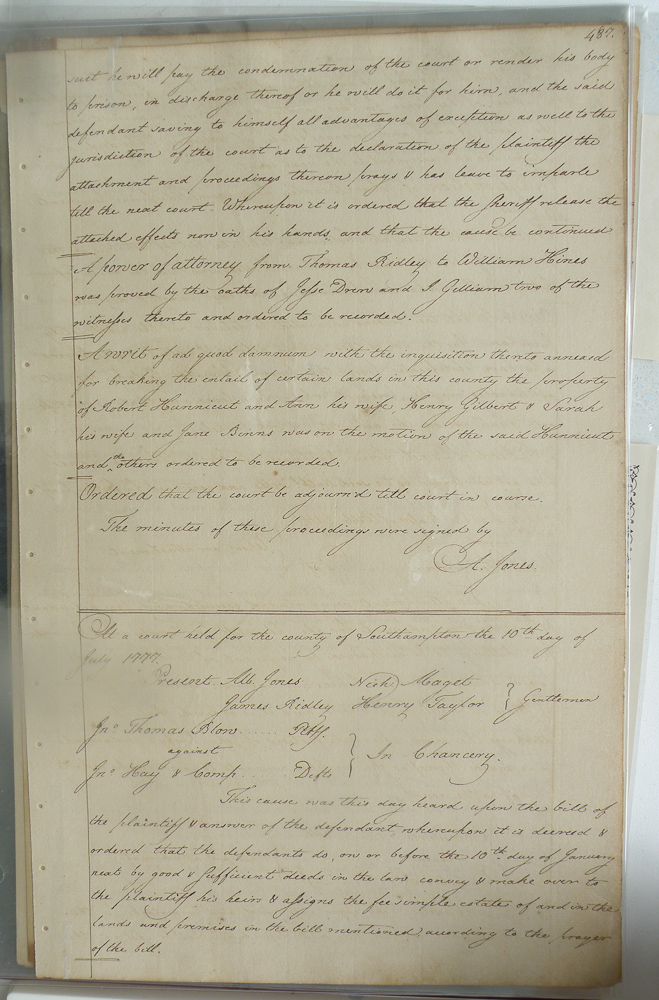 487.
suit he will pay the condemnation of the court or render his body
to prison, in discharge thereof or he will do it for him, and the said
defendant saving to himself all advantages of exception as well to the
jurisdiction of the court as to the declaration of the plaintiff the
attachment and proceedings thereon prays & has leave to imparle
till the next court. Whereupon it is ordered that the Sheriff release the
attached effects now in his hands, and that the cause be continued
A power of attorney from Thomas Ridley to William Hines
was proved by the oaths of Jesse Drew and J. Gilliam two of the
witnesses thereto and ordered to be recorded.
A writ of ad quod damnum with the inquisition thereto annexed
for breaking the entail of certain lands in this county the property
of Robert Hunnicut and Ann his wife, Henry Gilbert & Sarah
his wife and Jane Binns was on the motion of the said Hunnicut
and others ordered to be recorded.
Ordered that the court be adjourn'd till court in course.
The minutes of these proceedings were signed by
A. Jones.
At a court held for the county of Southampton the 10th day of
July 1777.
Present Alb. Jones Nich Maget
James Ridley Henry Taylor } Gentlemen
Jno Thomas Blow ..... Pltff.
against } In Chancery.
Jno Hay & Comp ... Defts
This cause was this day heard upon the bill of
the plaintiff & answer of the defendant, whereupon it is decreed &
ordered that the defendants do, on or before the 10th day of January
next by good & sufficient deeds in the law convey & make over to
the plaintiff his heirs & assigns the fee simple estate of and in the
lands and premises in the bill mentioned, according to the prayer
of the bill.